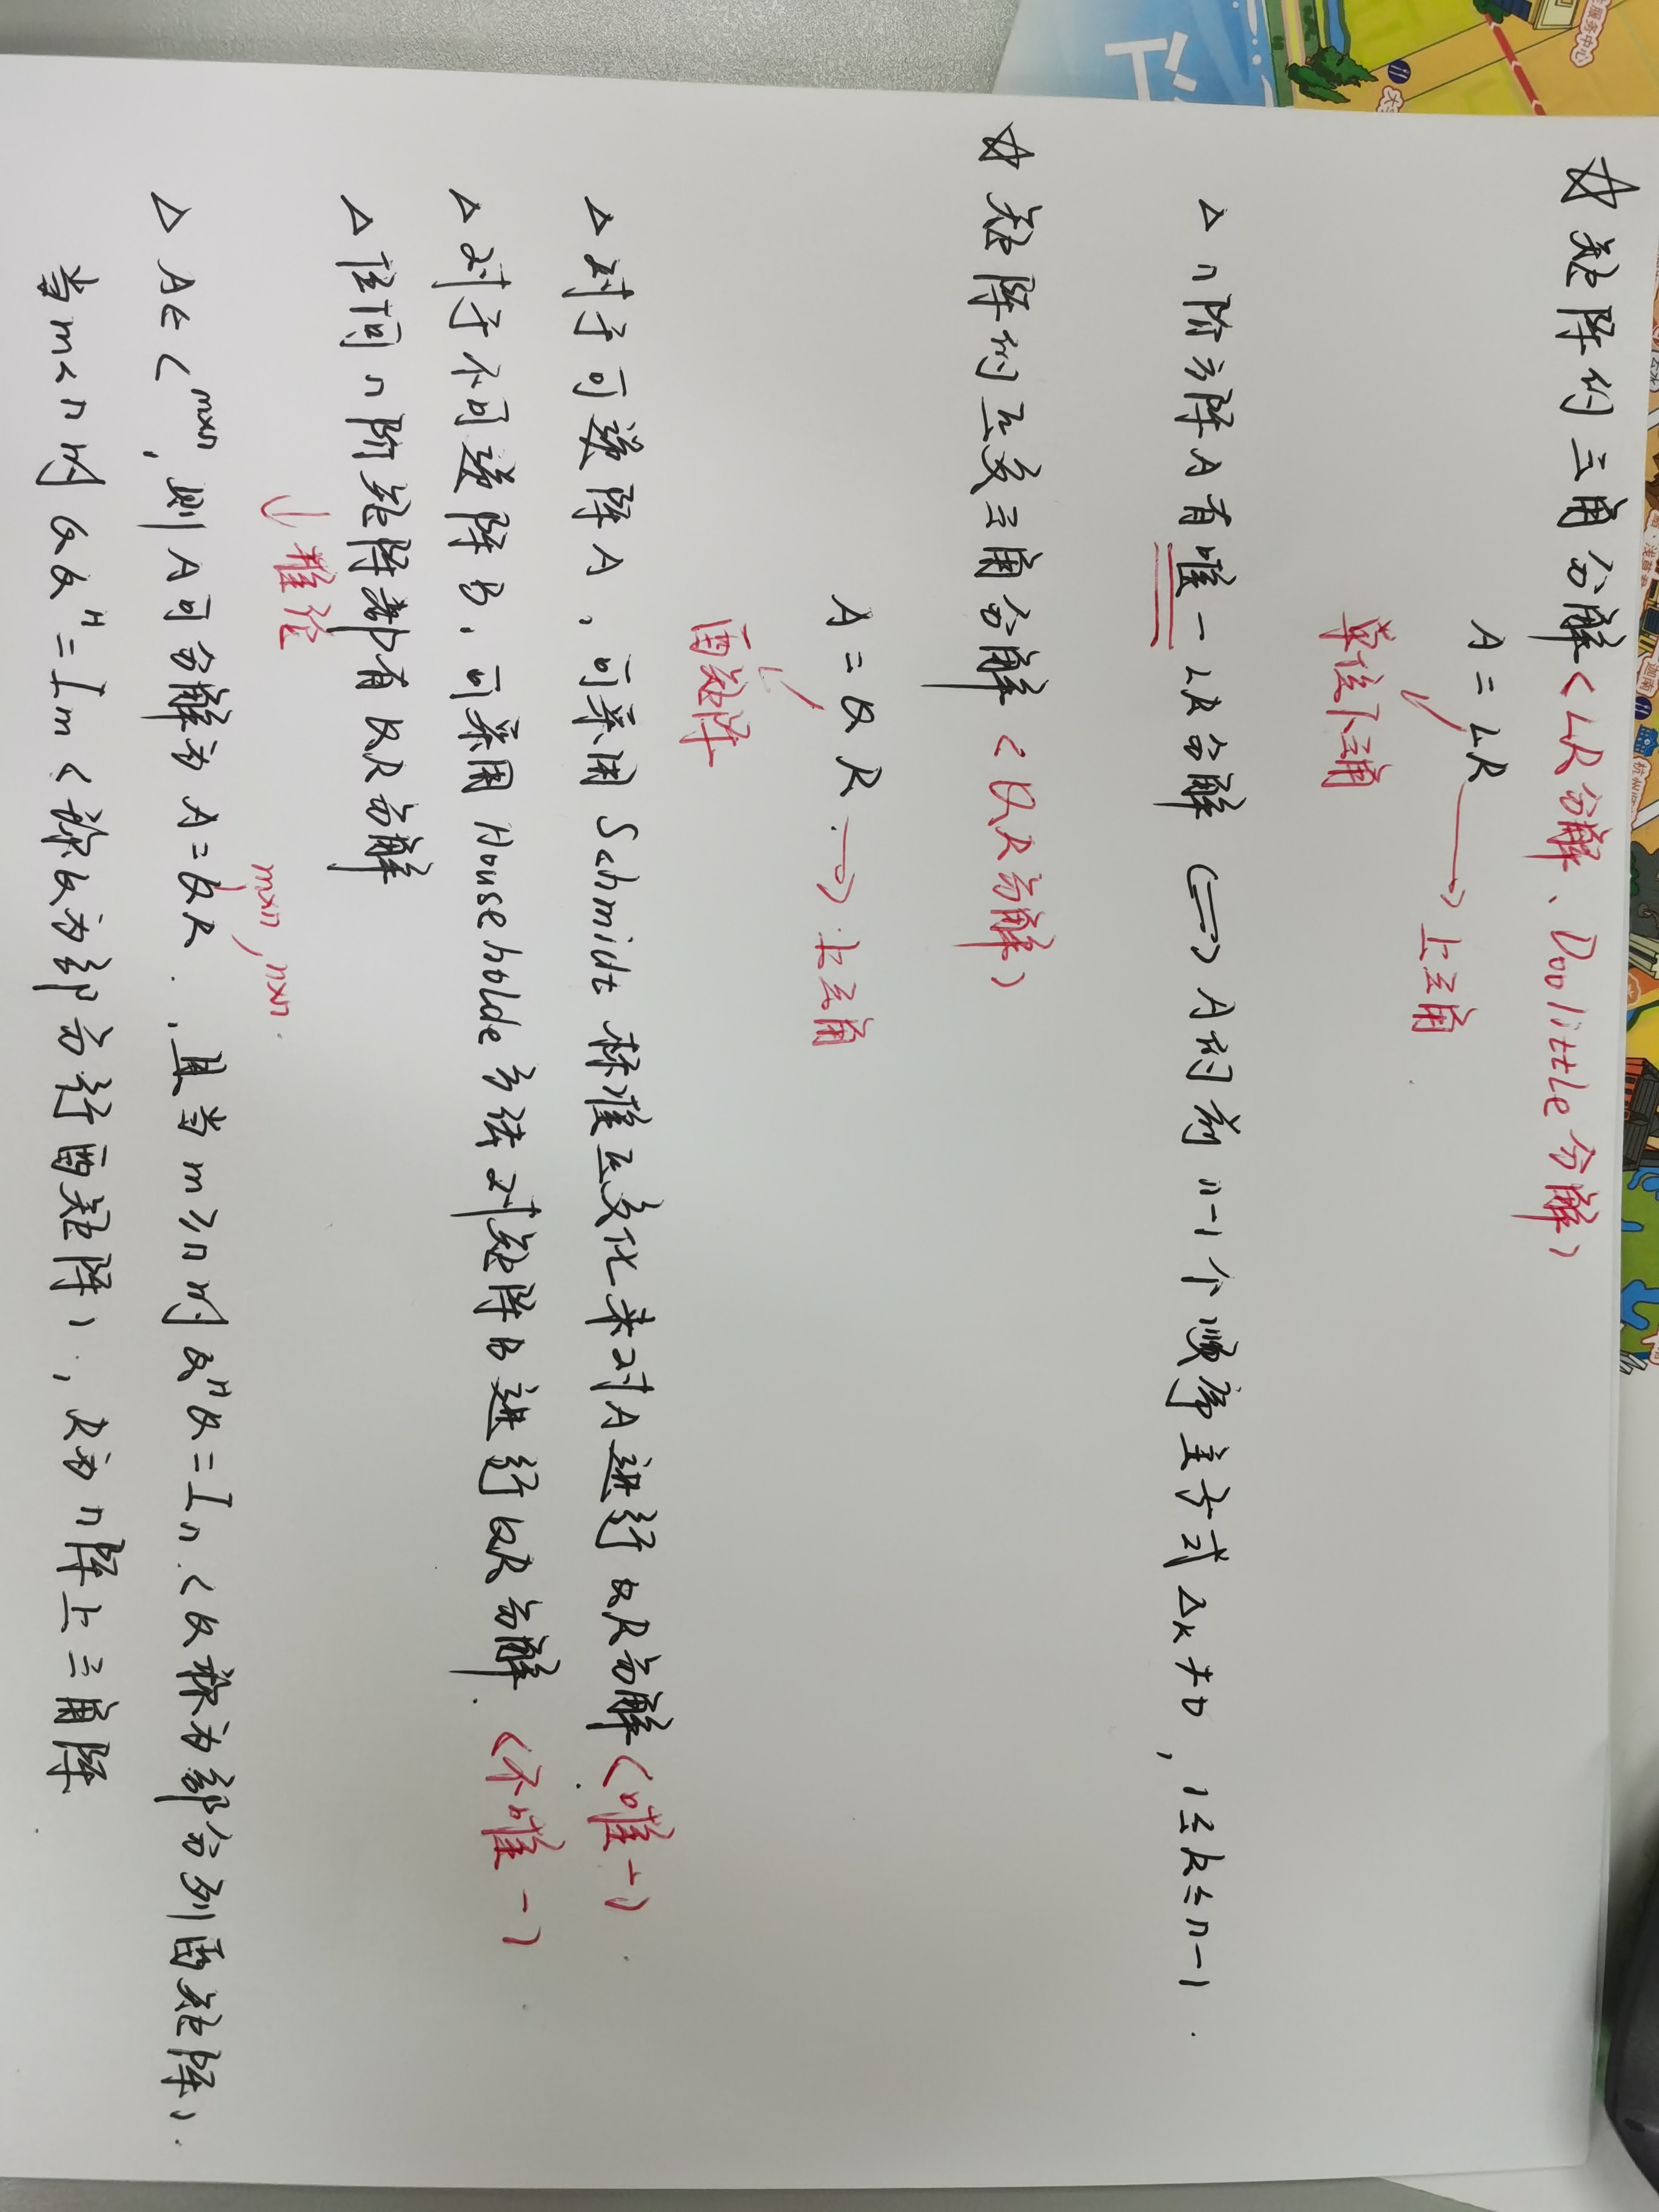 ☆ 矩阵的三角分解<LR分解、Doolittle分解>
A = LR
上三角
单位下三角
△ n阶方阵A有唯一LR分解 <=> A的前n-1个顺序主子式△k≠0，1≤k≤n-1.
☆ 矩阵的正交三角分解<QR分解>
A = QR
上三角
酉矩阵
△ 对于可逆阵A，可采用Schmidt标准正交化来对A进行QR分解<唯一>
△ 对于不可逆阵B，可采用Householde方法对矩阵B进行QR分解.<不唯一>
△ 任何n阶矩阵都有QR分解
↓推论
m×n , n×n
△ A∈C^{m×n}，则A可分解为A=QR，且当m≥n时Q^HQ=In<Q称为部分列酉矩阵>.
当m<n时QQ^H=Im<称Q为部分行酉矩阵>，R为n阵上三角阵
迦南
杭州
服务中心
大